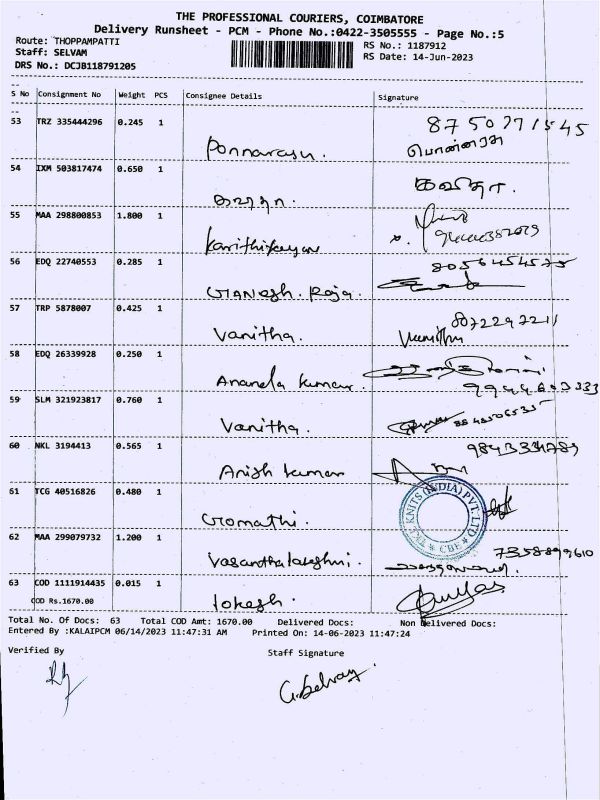 THE PROFESSIONAL COURIERS, COIMBATORE
Delivery Runsheet - PCM - Phone No.:0422-3505555 - Page No.:5
Route: THOPPAMPATTI
RS No.: 1187912
Staff: SELVAM
RS Date: 14-Jun-2023
DRS No.: DCJB118791205
S No Consignment No Weight PCS Consignee Details Signature
53 TRZ 335444296 0.245 1 Ponnarasu. 8750771545
பொன்னரசு
54 IXM 503817474 0.650 1 கவிதா.
55 MAA 298800853 1.800 1 Karithikeyan
56 EDQ 22740553 0.285 1 GANesh. Raja. 8056454575
57 TRP 5878007 0.425 1 Vanitha. Vanitha 8072297211
58 EDQ 26339928 0.250 1 Ananda kumar.
59 SLM 321923817 0.760 1 Vanitha.
60 NKL 3194413 0.565 1 Anish kumar
61 TCG 40516826 0.480 1 Gomathi.
KNITS (INDIA) PVT. LTD
CBE
62 MAA 299079732 1.200 1 Vasanthalakshmi. 7358899610
63 COD 1111914435 0.015 1 lokesh.
COD Rs.1670.00
Total No. Of Docs: 63 Total COD Amt: 1670.00 Delivered Docs: Non Delivered Docs:
Entered By :KALAIPCM 06/14/2023 11:47:31 AM Printed On: 14-06-2023 11:47:24
Verified By
Staff Signature
G. Selvay.